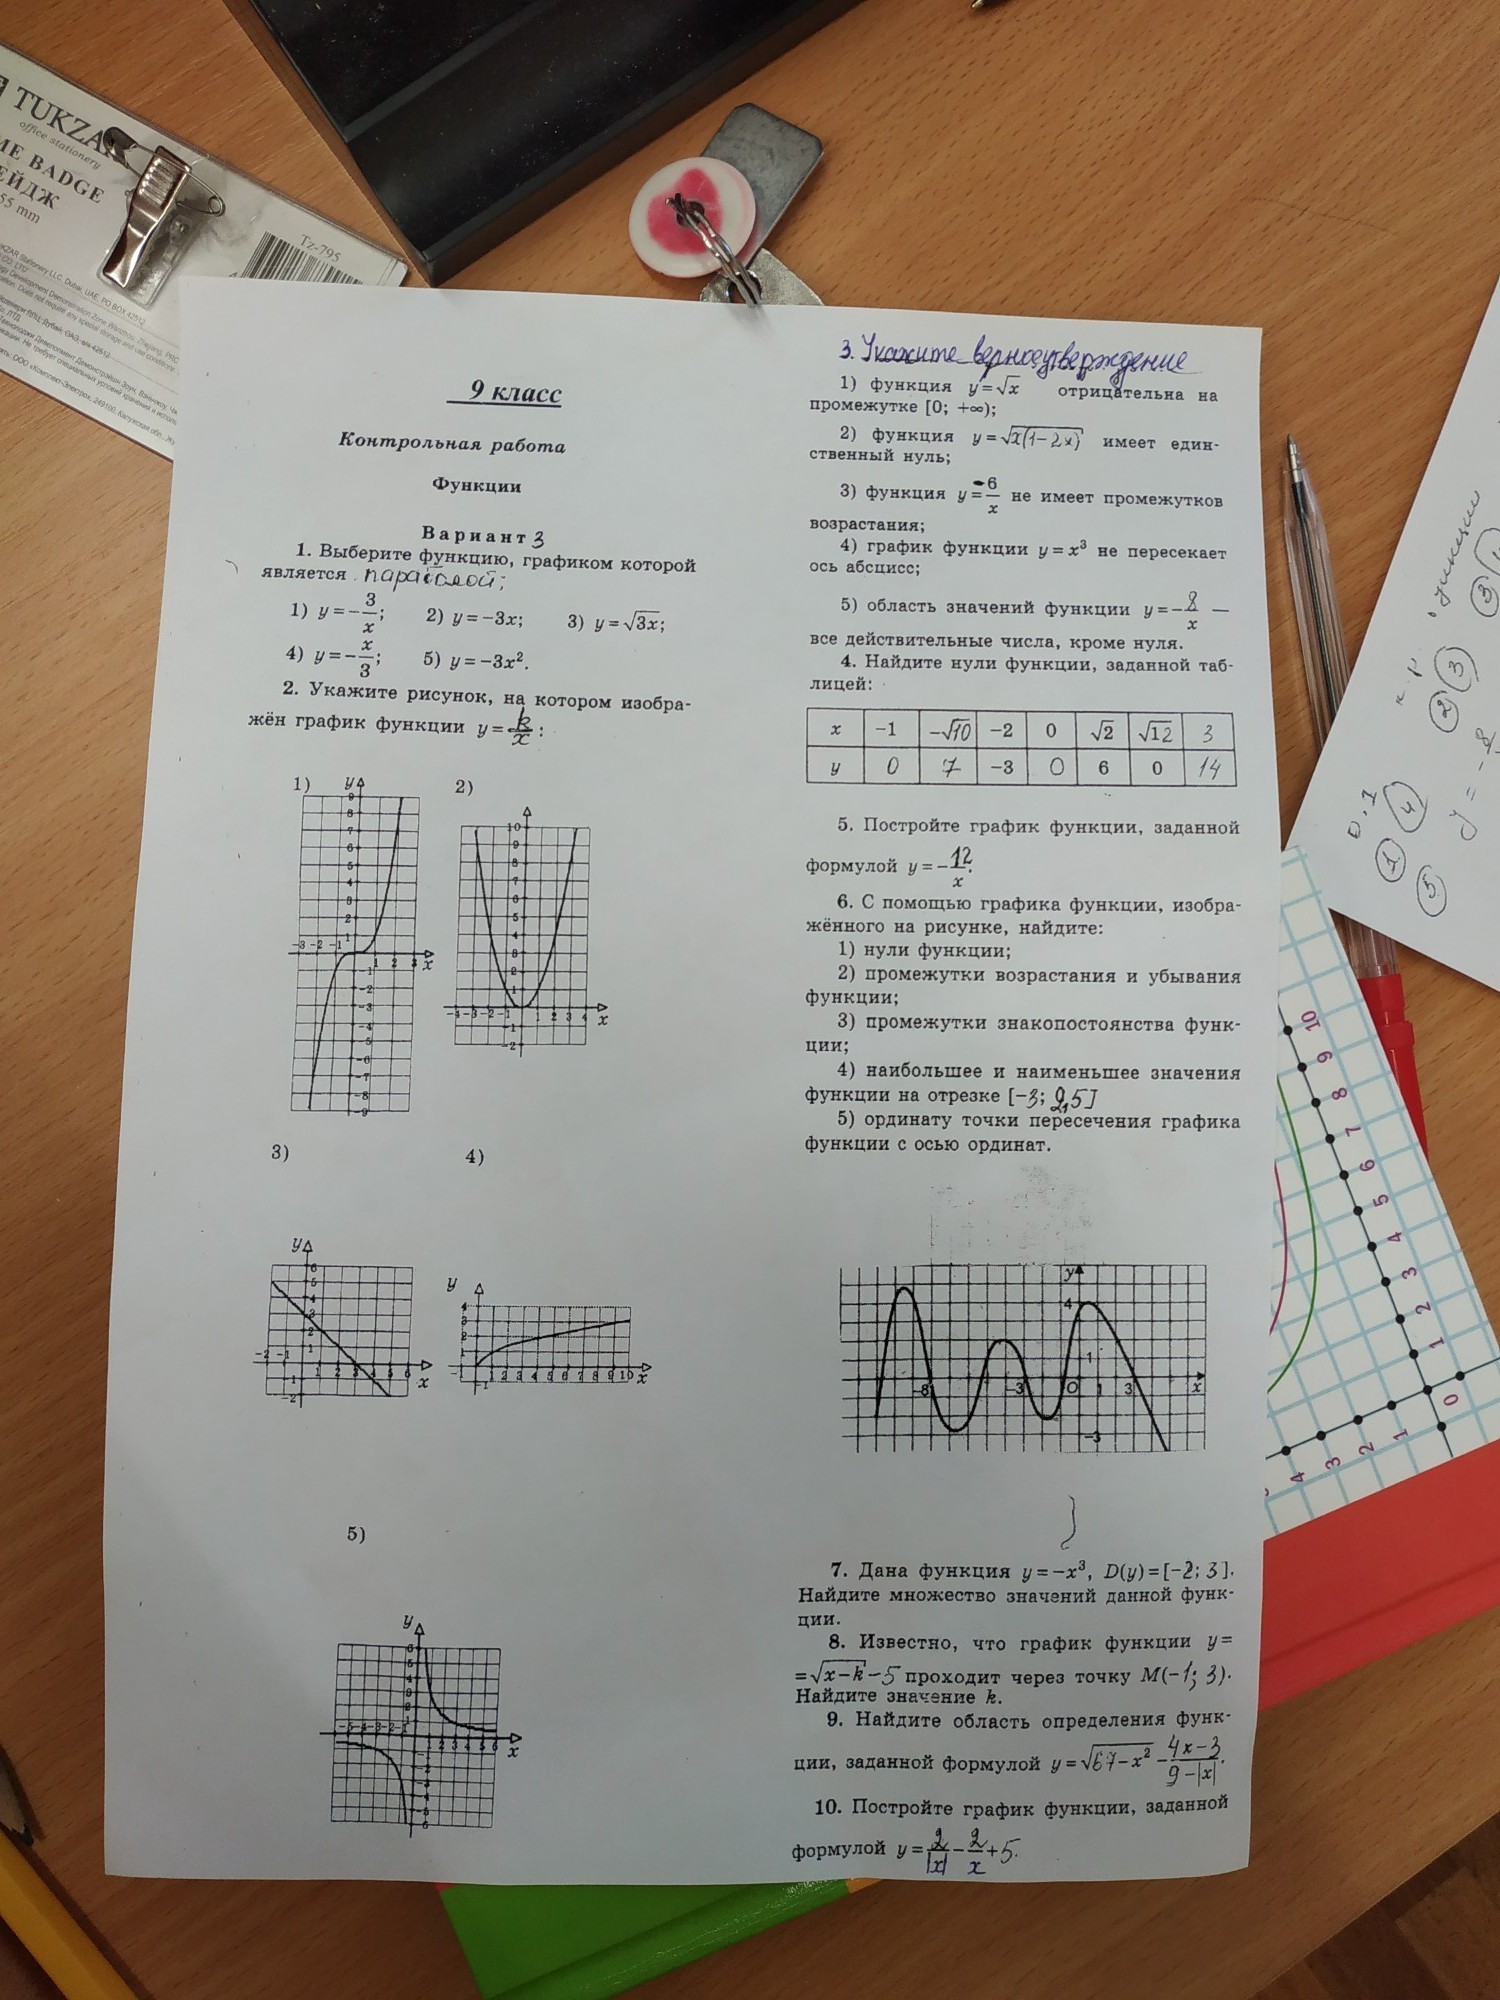 TUKZAR
office stationery
ME BADGE
ЕЙДЖ
55 mm
Tz-795
9 класс
Контрольная работа
Функции
Вариант 3
1. Выберите функцию, графиком которой
является параболой;
1) y=-3/x; 2) y=-3x; 3) y=√3x;
4) y=-x/3; 5) y=-3x².
2. Укажите рисунок, на котором изобра-
жён график функции y=k/x:
1) 2)
3) 4)
5)
3. Укажите верное утверждение
1) функция y=√x отрицательна на
промежутке [0; +∞);
2) функция y=√x(1-2x) имеет един-
ственный нуль;
3) функция y=-6/x не имеет промежутков
возрастания;
4) график функции y=x³ не пересекает
ось абсцисс;
5) область значений функции y=-8/x —
все действительные числа, кроме нуля.
4. Найдите нули функции, заданной таб-
лицей:
x -1 -√10 -2 0 √2 √12 3
y 0 7 -3 0 6 0 14
5. Постройте график функции, заданной
формулой y=-12/x.
6. С помощью графика функции, изобра-
жённого на рисунке, найдите:
1) нули функции;
2) промежутки возрастания и убывания
функции;
3) промежутки знакопостоянства функ-
ции;
4) наибольшее и наименьшее значения
функции на отрезке [-3; 2,5]
5) ординату точки пересечения графика
функции с осью ординат.
y 4 1 -8 -3 0 1 3 x -3
7. Дана функция y=-x³, D(y)=[-2; 3].
Найдите множество значений данной функ-
ции.
8. Известно, что график функции y=
=√x-k-5 проходит через точку M(-1; 3).
Найдите значение k.
9. Найдите область определения функ-
ции, заданной формулой y=√67-x² - 4x-3/9-|x|.
10. Постройте график функции, заданной
формулой y=2/|x|-2/x+5.